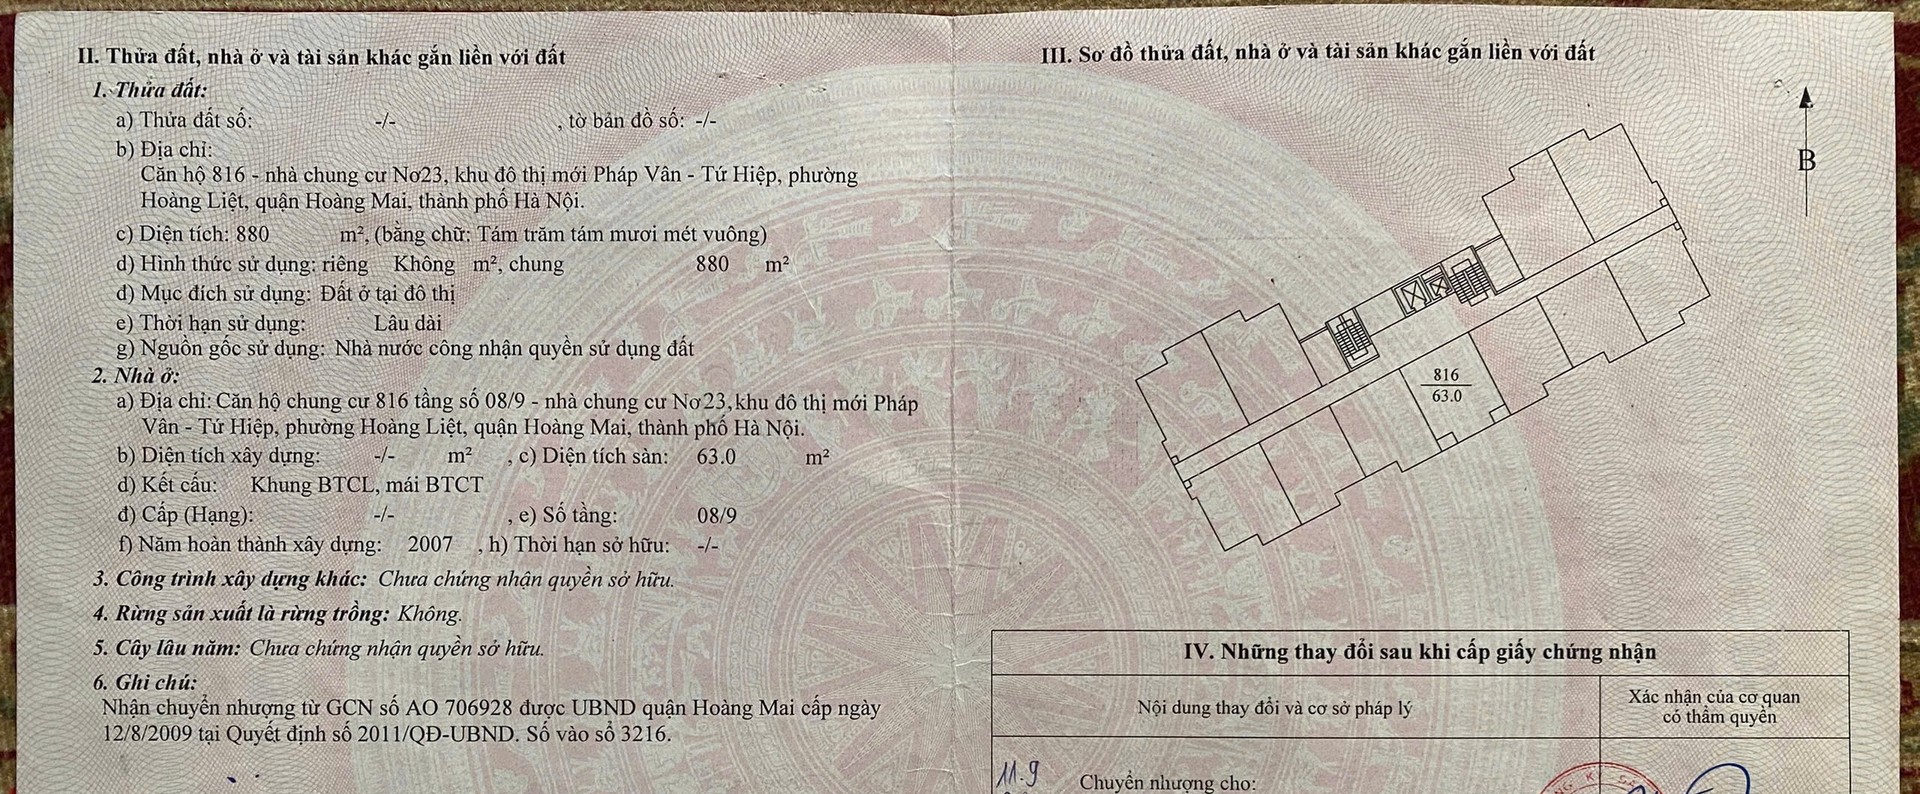 II. Thửa đất, nhà ở và tài sản khác gắn liền với đất
1. Thửa đất:
a) Thửa đất số: -/- , tờ bản đồ số: -/-
b) Địa chỉ:
Căn hộ 816 - nhà chung cư Nơ23, khu đô thị mới Pháp Vân - Tứ Hiệp, phường
Hoàng Liệt, quận Hoàng Mai, thành phố Hà Nội.
c) Diện tích: 880 m², (bằng chữ: Tám trăm tám mươi mét vuông)
d) Hình thức sử dụng: riêng Không m², chung 880 m²
đ) Mục đích sử dụng: Đất ở tại đô thị
e) Thời hạn sử dụng: Lâu dài
g) Nguồn gốc sử dụng: Nhà nước công nhận quyền sử dụng đất
2. Nhà ở:
a) Địa chỉ: Căn hộ chung cư 816 tầng số 08/9 - nhà chung cư Nơ23, khu đô thị mới Pháp
Vân - Tứ Hiệp, phường Hoàng Liệt, quận Hoàng Mai, thành phố Hà Nội.
b) Diện tích xây dựng: -/- m² , c) Diện tích sàn: 63.0 m²
d) Kết cấu: Khung BTCL, mái BTCT
đ) Cấp (Hạng): -/- , e) Số tầng: 08/9
f) Năm hoàn thành xây dựng: 2007 , h) Thời hạn sở hữu: -/-
3. Công trình xây dựng khác: Chưa chứng nhận quyền sở hữu.
4. Rừng sản xuất là rừng trồng: Không.
5. Cây lâu năm: Chưa chứng nhận quyền sở hữu.
6. Ghi chú:
Nhận chuyển nhượng từ GCN số AO 706928 được UBND quận Hoàng Mai cấp ngày
12/8/2009 tại Quyết định số 2011/QĐ-UBND. Số vào sổ 3216.
III. Sơ đồ thửa đất, nhà ở và tài sản khác gắn liền với đất
B
816
63.0
IV. Những thay đổi sau khi cấp giấy chứng nhận
Nội dung thay đổi và cơ sở pháp lý
Xác nhận của cơ quan
có thẩm quyền
11.9
Chuyển nhượng cho: